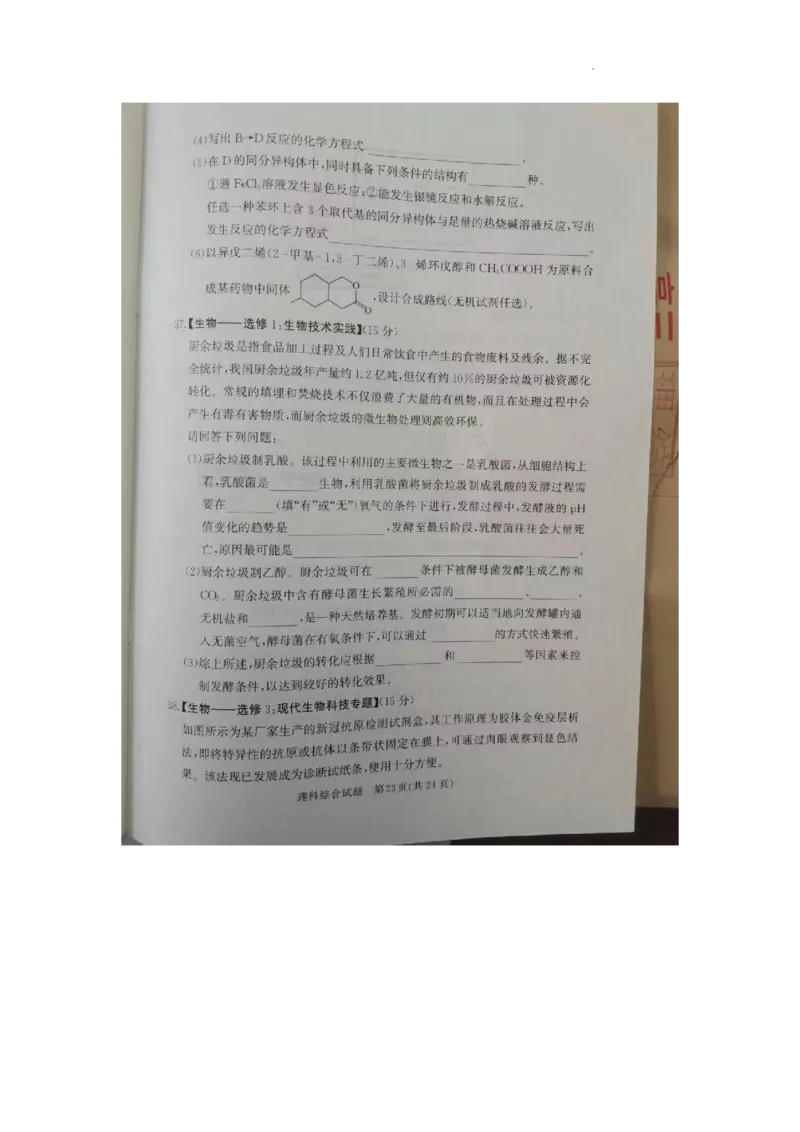 (4)写出 B→D反应的化学方程式____________。
(5)在 D的同分异构体中,同时具备下列条件的结构有________种。
①遇 FeCl₃溶液发生显色反应;②能发生银镜反应和水解反应。
任选一种苯环上含 3 个取代基的同分异构体与足量的热烧碱溶液反应,写出
发生反应的化学方程式____________。
(6)以异戊二烯(2-甲基-1,3-丁二烯)、3-烯环戊醇和 CH₃COOOH 为原料合
成某药物中间体 O O ,设计合成路线(无机试剂任选)。
37.【生物——选修 1:生物技术实践】(15 分)
厨余垃圾是指食品加工过程及人们日常饮食中产生的食物废料及残余。据不完
全统计,我国厨余垃圾年产量约 1.2 亿吨,但仅有约 10%的厨余垃圾可被资源化
转化。常规的填埋和焚烧技术不仅浪费了大量的有机物,而且在处理过程中会
产生有毒有害物质,而厨余垃圾的微生物处理则高效环保。
请回答下列问题:
(1)厨余垃圾制乳酸。该过程中利用的主要微生物之一是乳酸菌,从细胞结构上
看,乳酸菌是________生物,利用乳酸菌将厨余垃圾制成乳酸的发酵过程需
要在________(填“有”或“无”)氧气的条件下进行,发酵过程中,发酵液的 pH
值变化的趋势是____________,发酵至最后阶段,乳酸菌往往会大量死
亡,原因最可能是____________。
(2)厨余垃圾制乙醇。厨余垃圾可在________条件下被酵母菌发酵生成乙醇和
CO₂。厨余垃圾中含有酵母菌生长繁殖所必需的________、________、
无机盐和________,是一种天然培养基。发酵初期可以适当地向发酵罐内通
入无菌空气,酵母菌在有氧条件下,可以通过________的方式快速繁殖。
(3)综上所述,厨余垃圾的转化应根据________和________等因素来控
制发酵条件,以达到较好的转化效果。
38.【生物——选修 3:现代生物科技专题】(15 分)
如图所示为某厂家生产的新冠抗原检测试剂盒,其工作原理为胶体金免疫层析
法,即将特异性的抗原或抗体以条带状固定在膜上,可通过肉眼观察到显色结
果。该法现已发展成为诊断试纸条,使用十分方便。
理科综合试题 第23页(共 24 页)